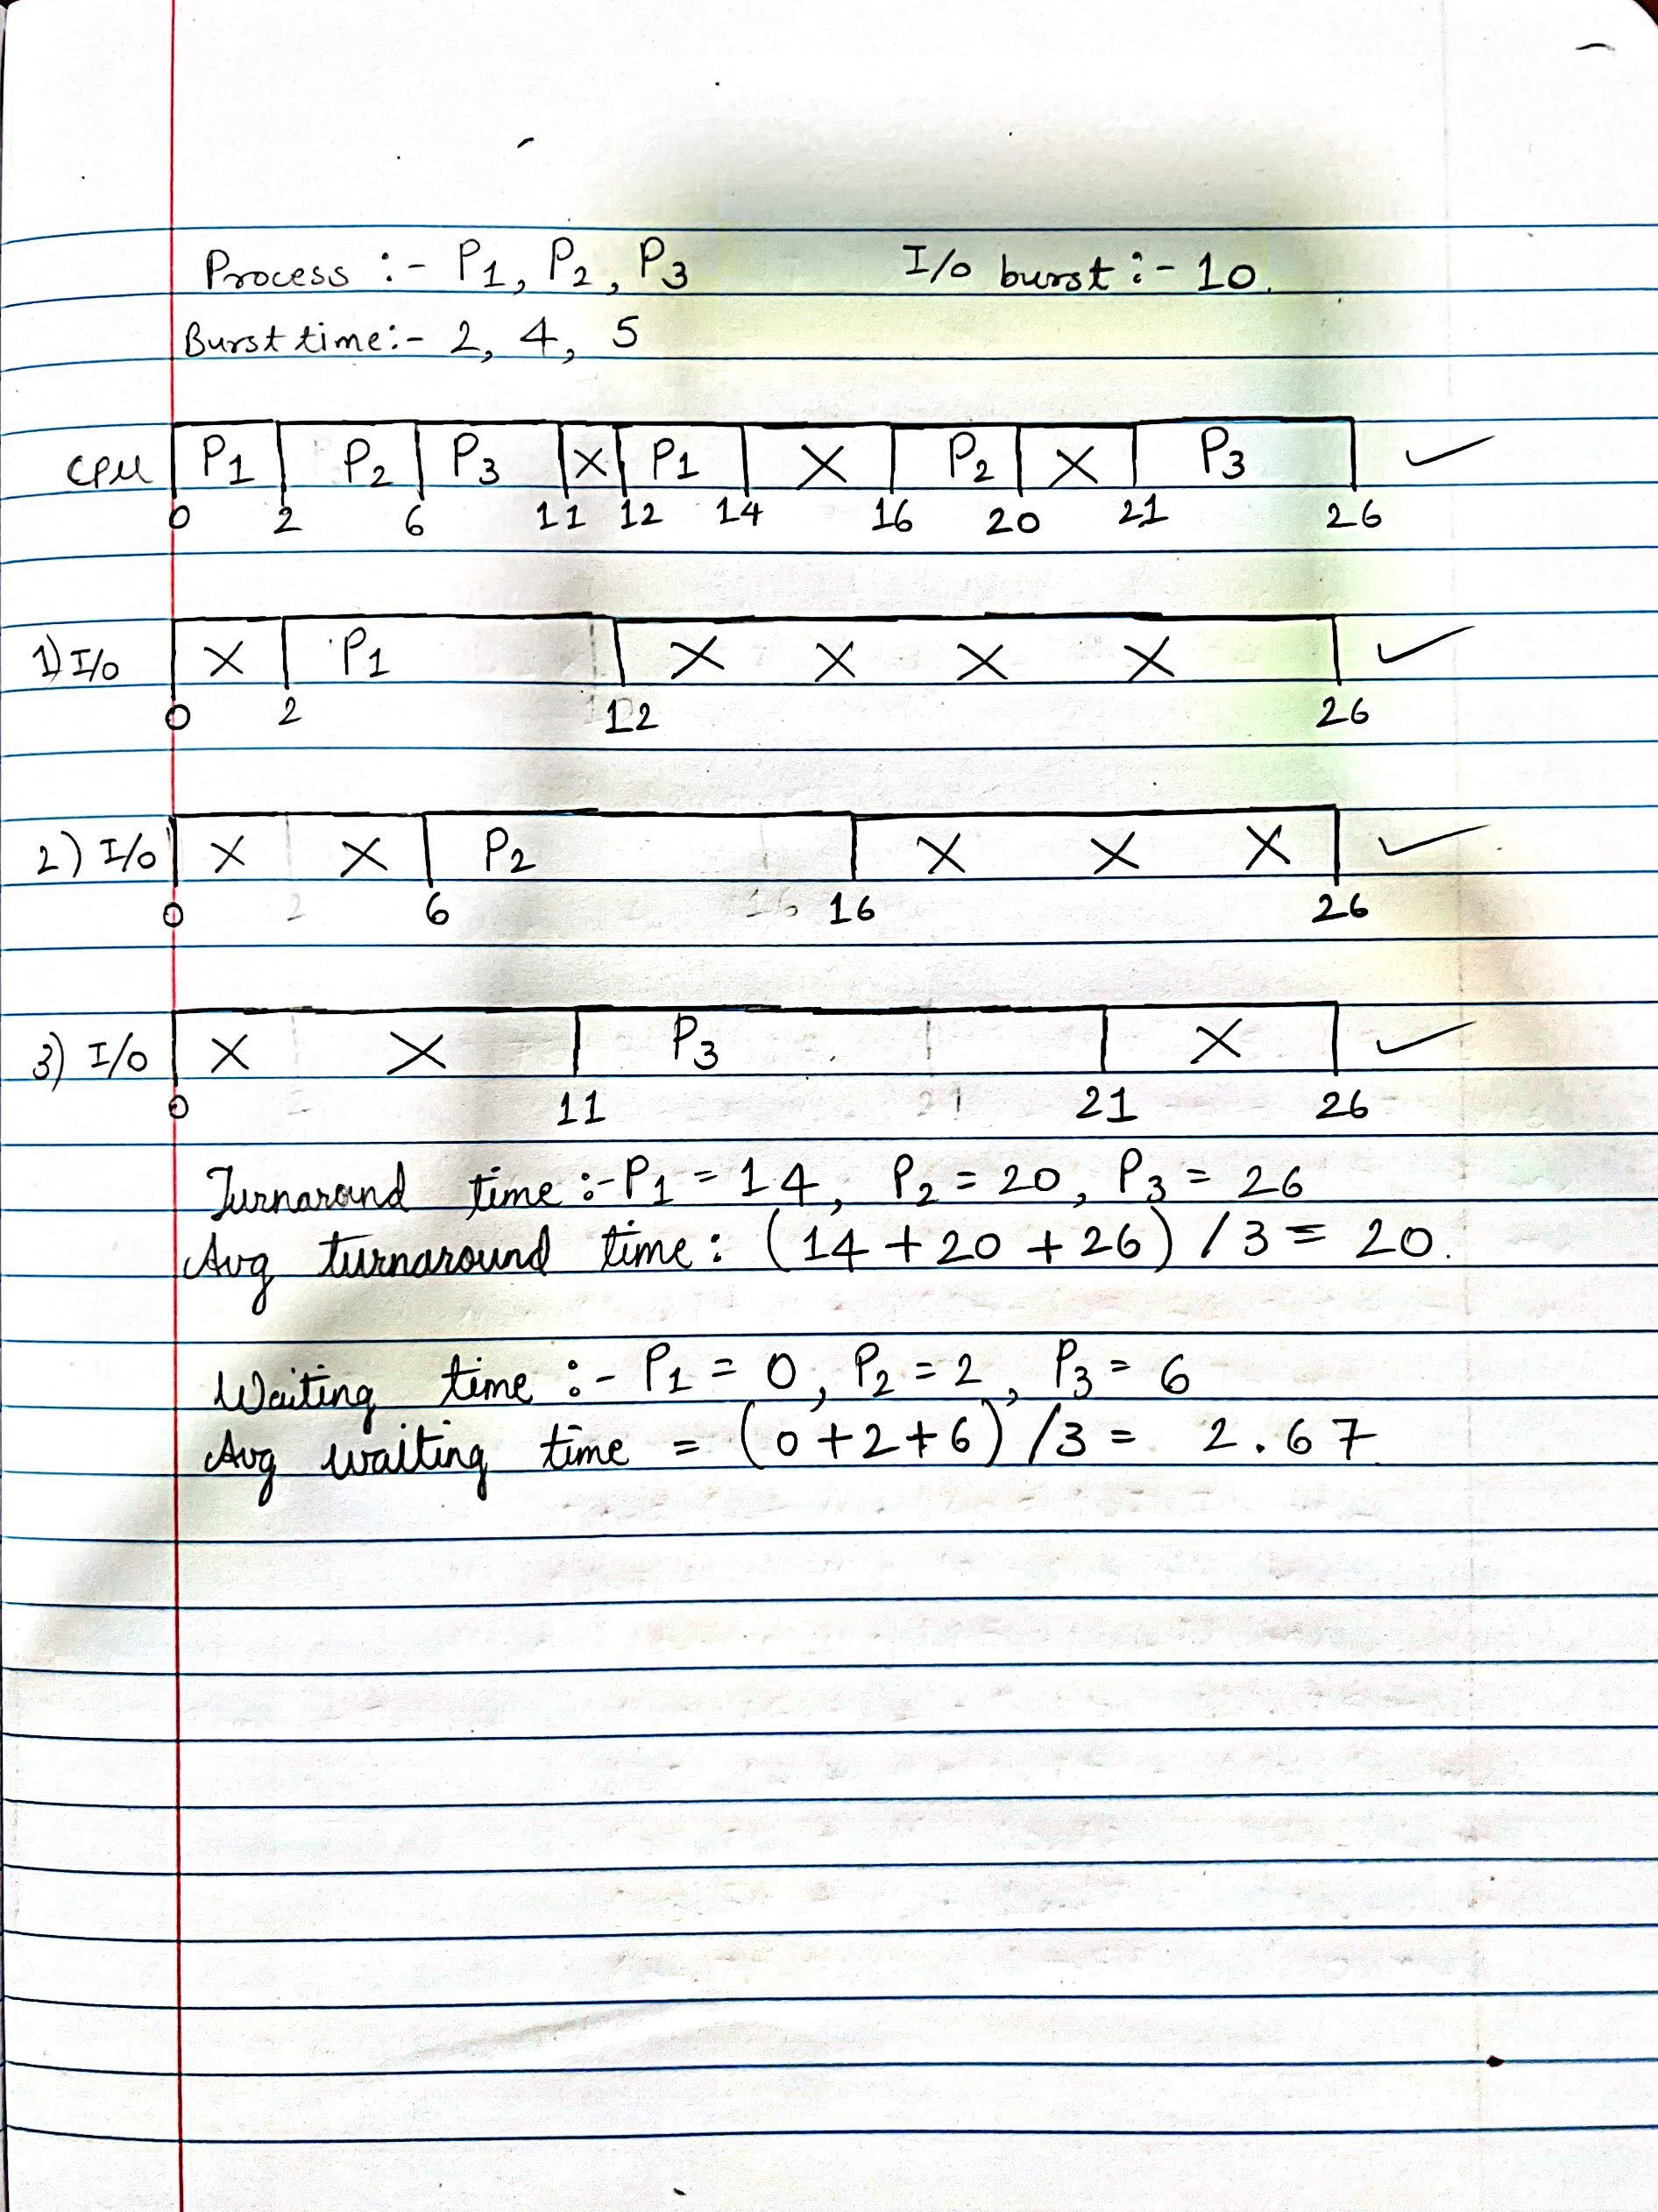 Process :- P1, P2, P3 I/o burst :- 10.
Burst time:- 2, 4, 5
CPU P1 P2 P3 X P1 X P2 X P3 ✓
0 2 6 11 12 14 16 20 21 26
1) I/o X P1 X X X X ✓
0 2 12 26
2) I/o X X P2 X X X ✓
0 2 6 16 16 26
3) I/o X X P3 X ✓
0 2 11 21 21 26
Turnaround time :- P1 = 14, P2 = 20, P3 = 26
Avg turnaround time : (14 + 20 + 26) / 3 = 20.
Waiting time :- P1 = 0, P2 = 2, P3 = 6
Avg waiting time = (0+2+6) /3 = 2.67